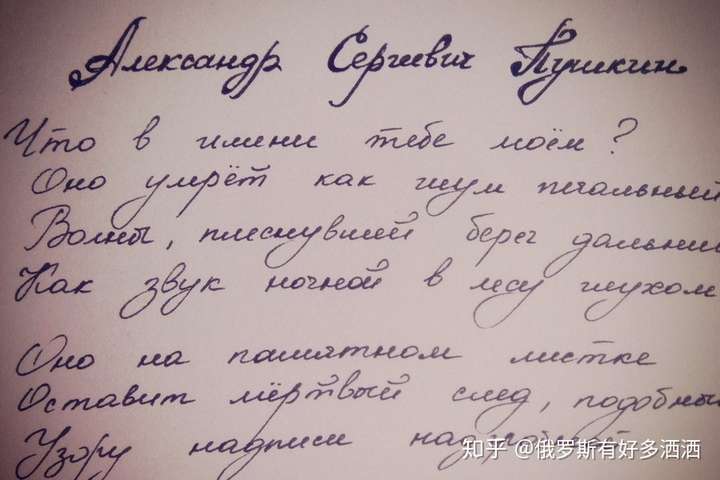 Александр Сергиевич Пушкин
Что в имени тебе моём?
Оно умрёт как шум печальный
Волны, плеснувшей берег дальни
Как звук ночной в лесу глухом
Оно на памятном листке
Оставит мёртвый след, подобны
Узору надписи
知乎 @俄罗斯有好多洒洒